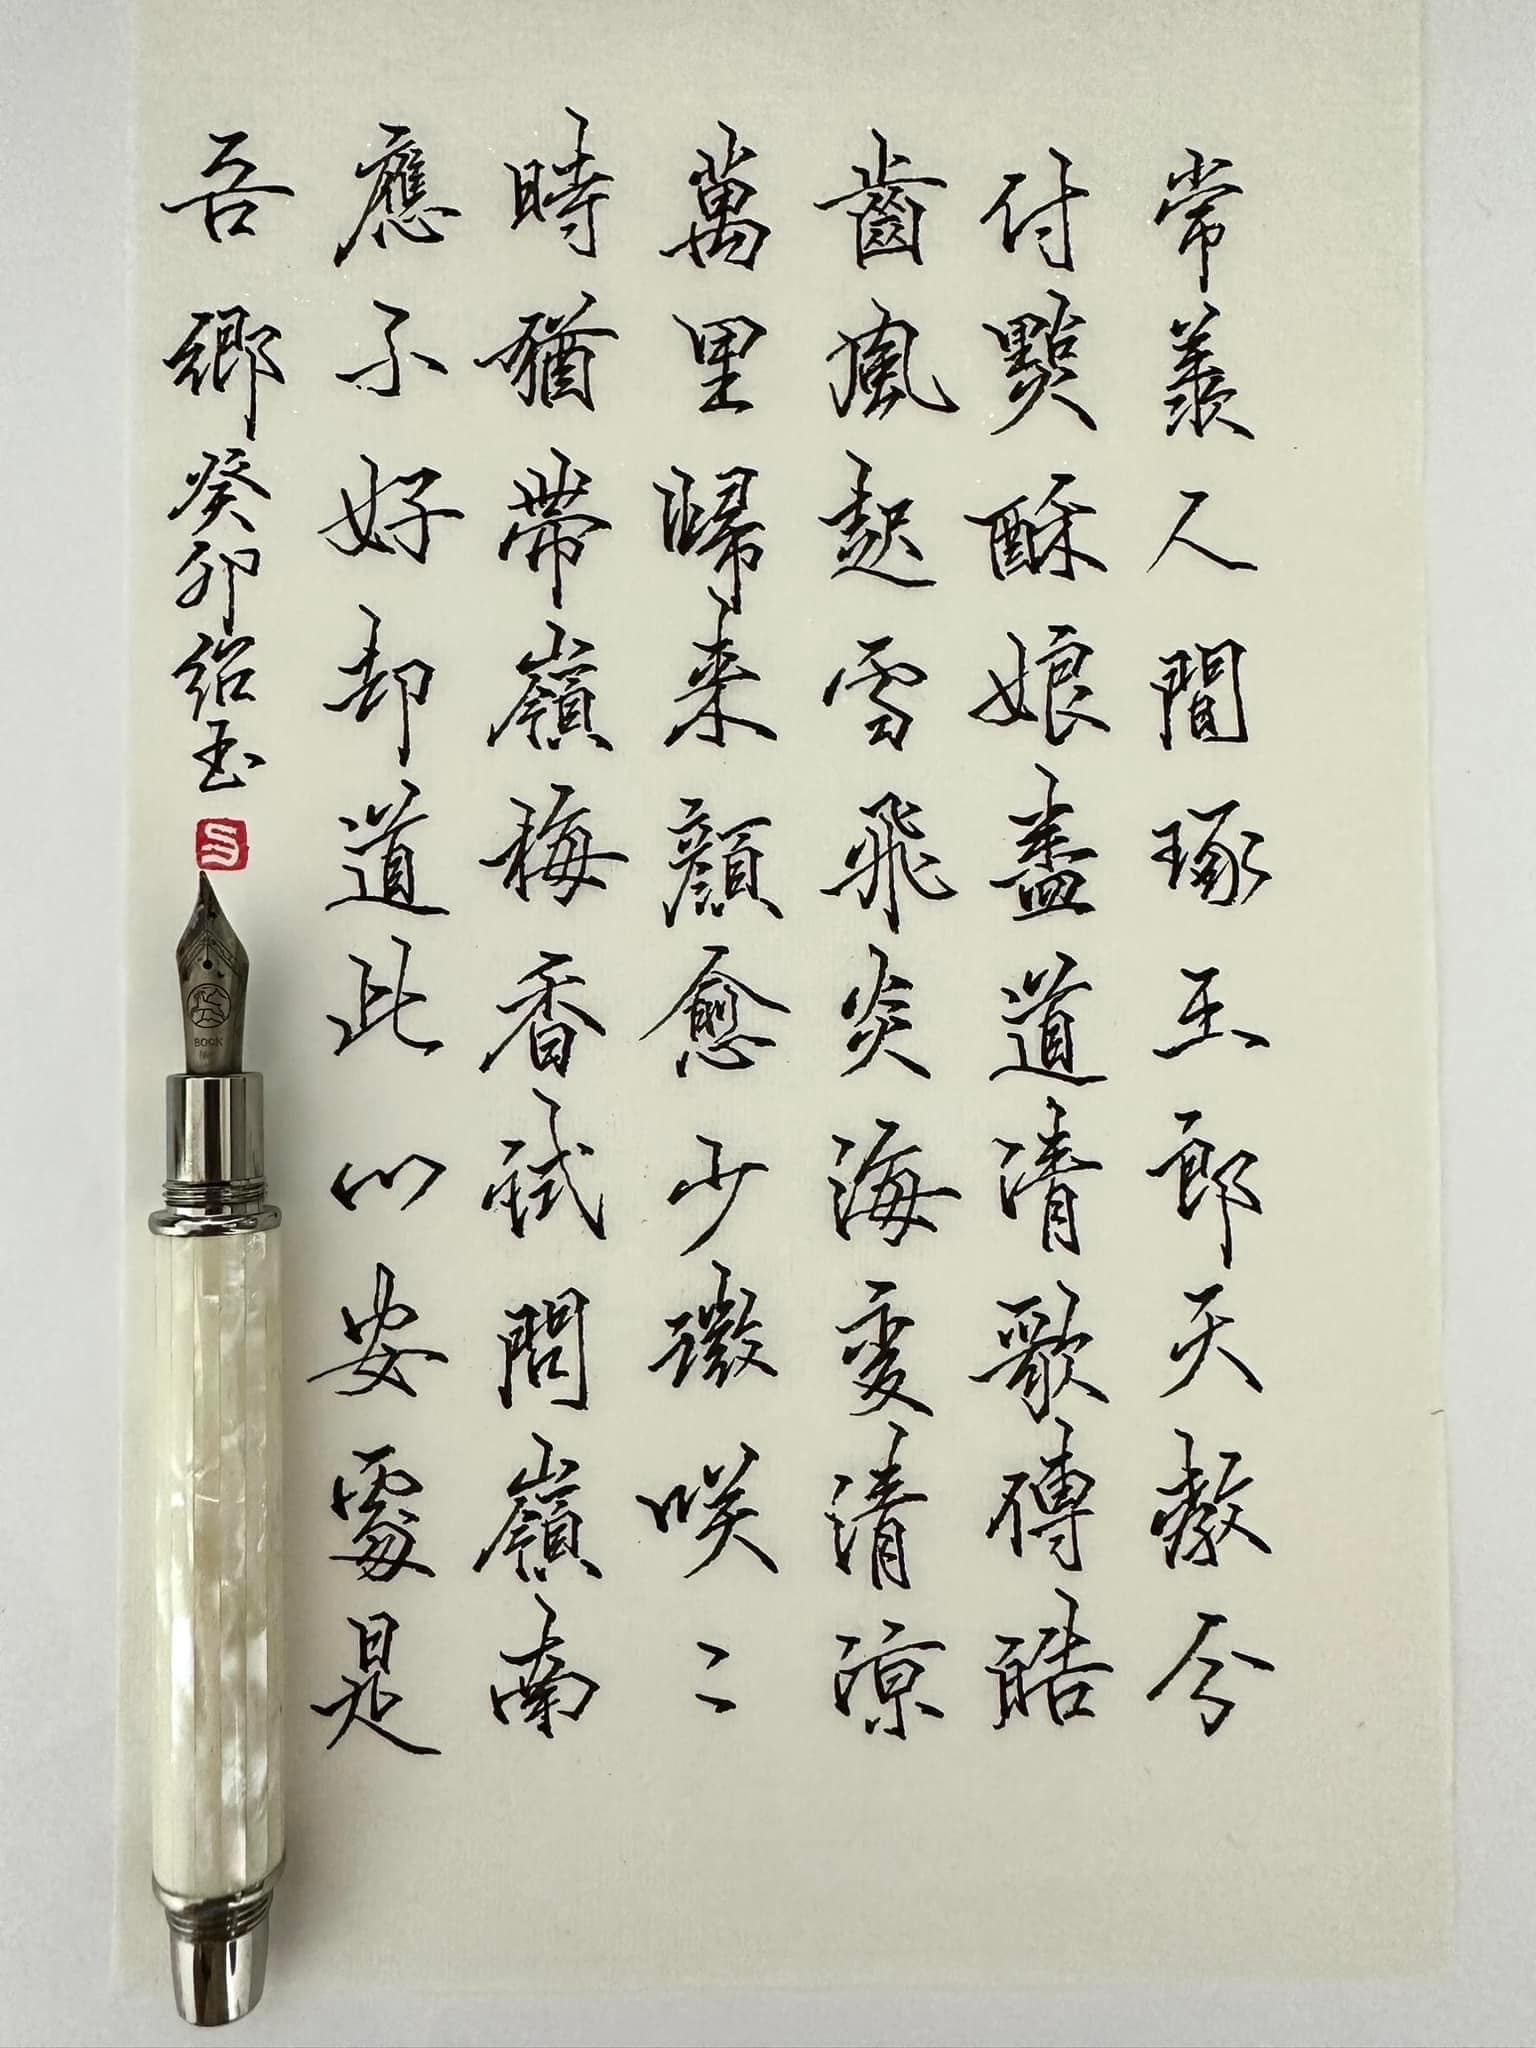 常羨人間琢玉郎天教分
付點酥娘盡道清歌傳皓
齒風起雪飛炎海變清涼
萬里歸来顏愈少微咲〻
時猶帶嶺梅香試問嶺南
應不好却道此心安處是
吾鄉癸卯绍玉
BOCK